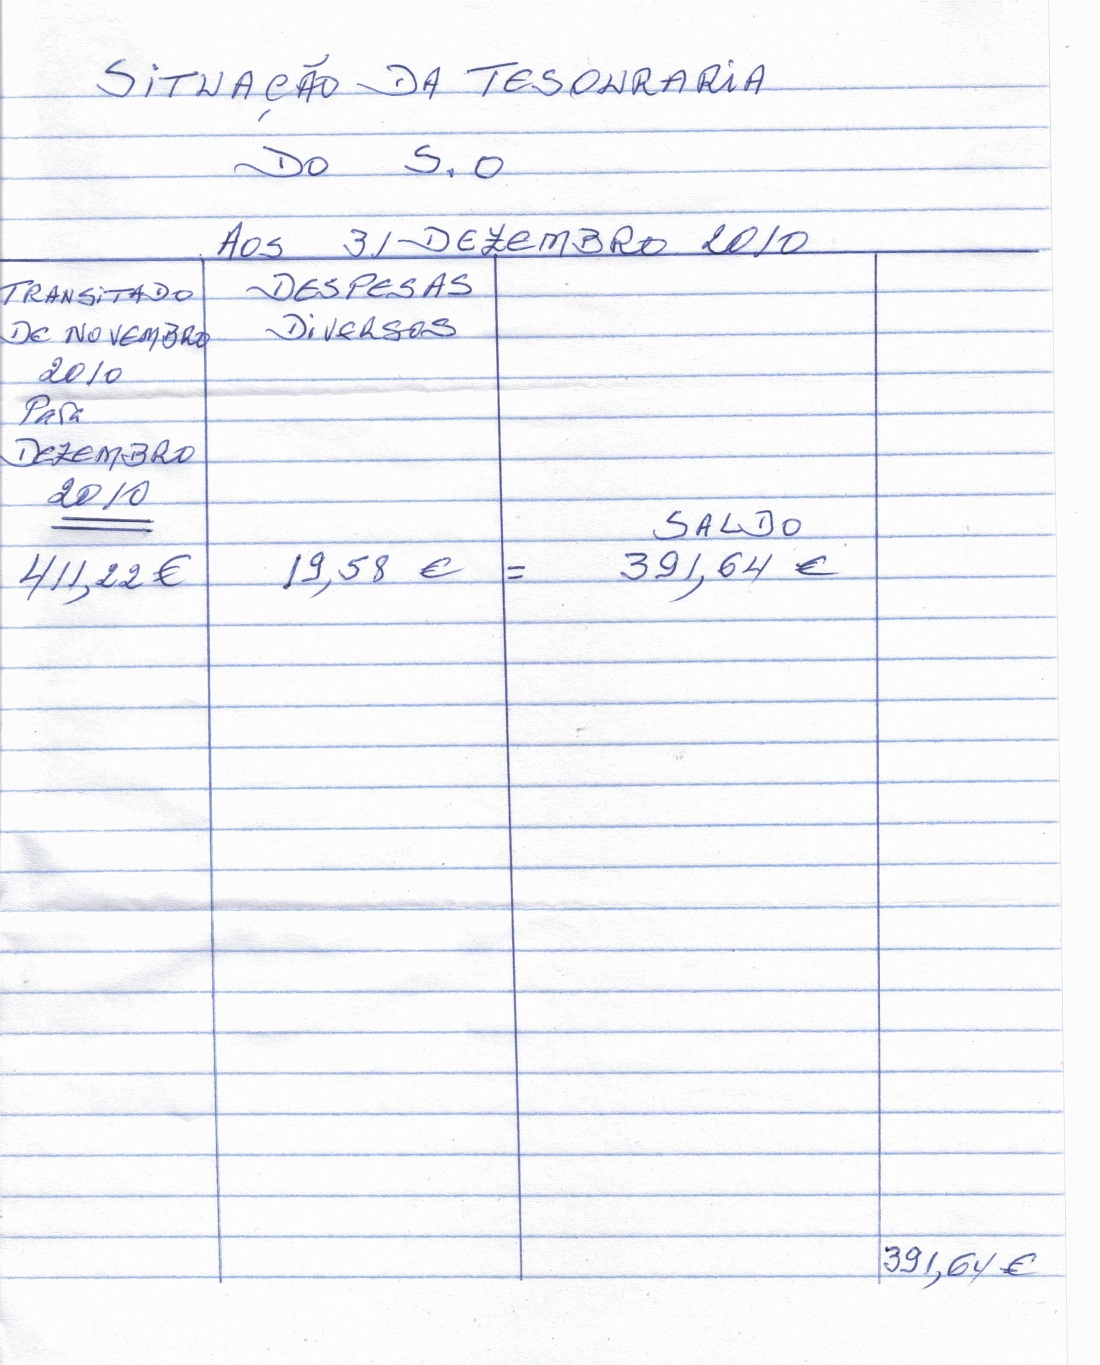 SITUAÇÃO DA TESOURARIA
DO S.O
AOS 31 DEZEMBRO 2010
TRANSITADO
DE NOVEMBRO
2010
Para
DEZEMBRO
2010
DESPESAS
DIVERSOS
SALDO
411,22 € 19,58 € = 391,64 €
391,64 €